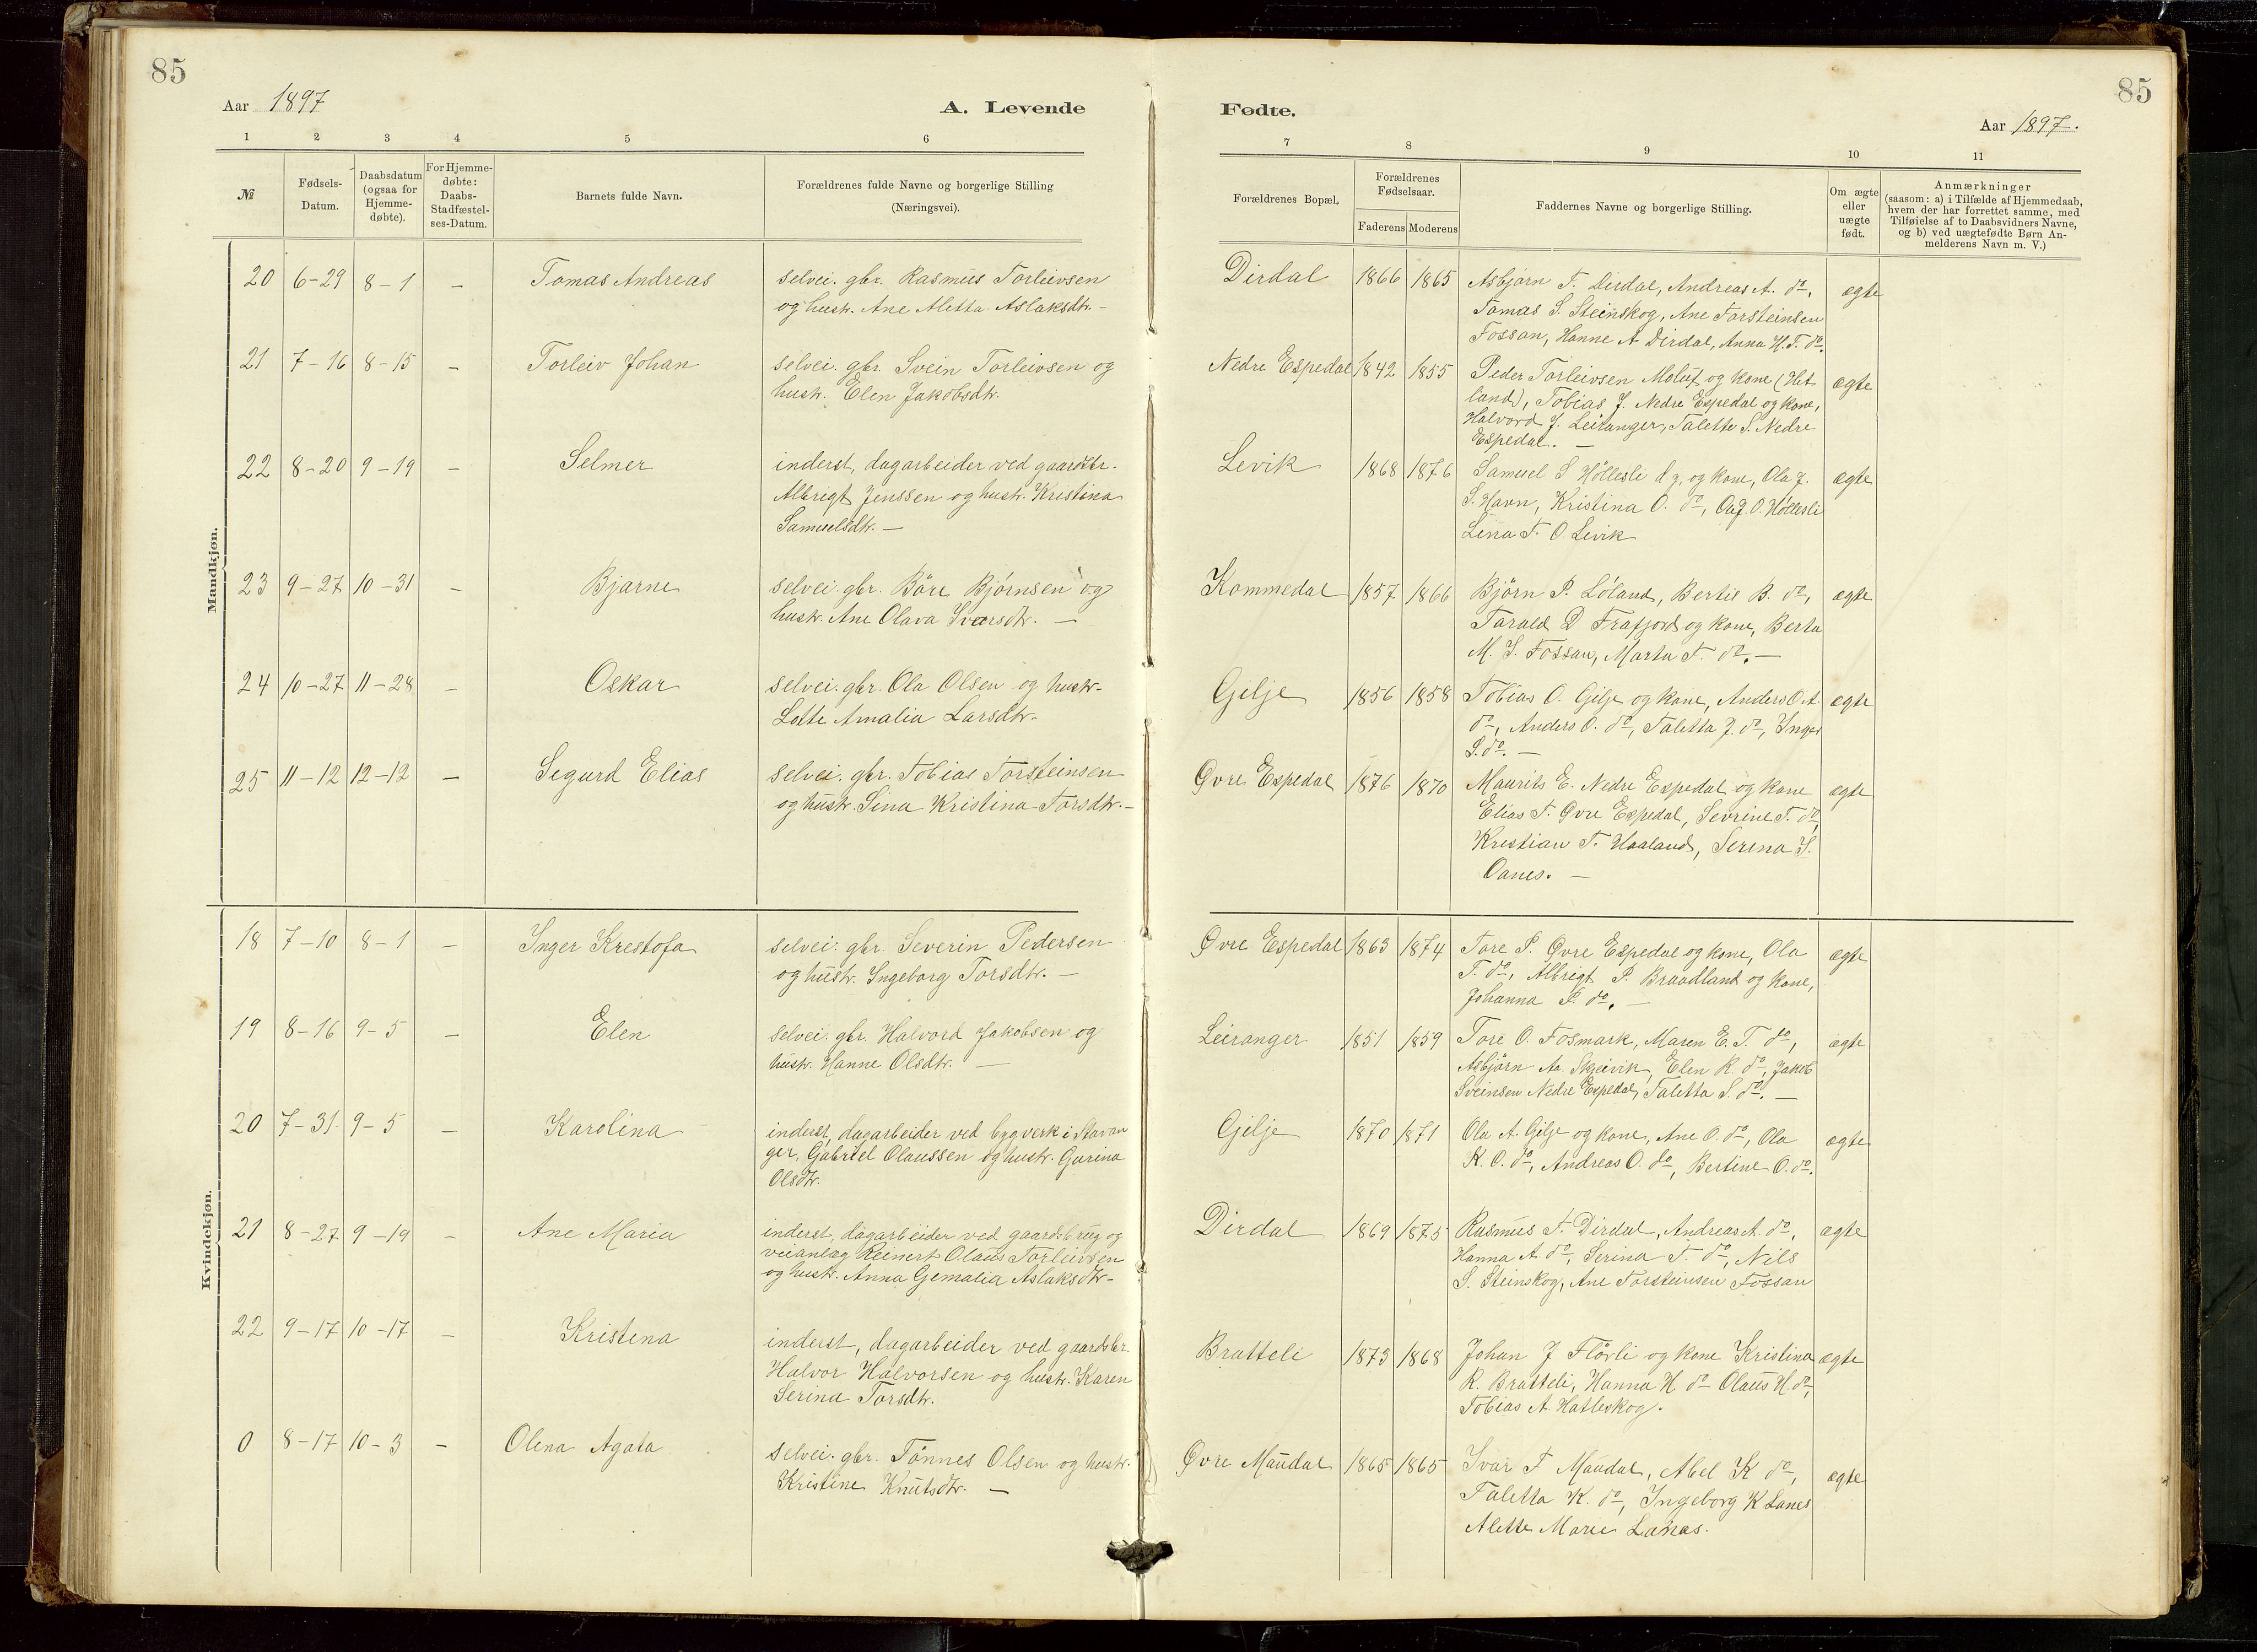 85
85
Aar 1897
A. Levende
Fødte.
Aar 1897.
1 2 3 4 5 6
7 8 9 10 11
№
Fødsels-
Datum.
Daabsdatum
(ogsaa for
Hjemme-
døbte).
For Hjemme-
døbte:
Daabs-
Stadfæstel-
ses-Datum.
Barnets fulde Navn.
Forældrenes fulde Navne og borgerlige Stilling
(Næringsvei).
Forældrenes Bopæl.
Forældrenes
Fødselsaar.
Faderens Moderens
Faddernes Navne og borgerlige Stilling.
Om ægte
eller
uægte
født.
Anmærkninger
(saasom: a) i Tilfælde af Hjemmedaab,
hvem der har forrettet samme, med
Tilføielse af to Daabsvidners Navne,
og b) ved uægtefødte Børn An-
melderens Navn m. V.)
Mandkjøn.
20 6-29 8-1 - Tomas Andreas
selvei. gbr. Rasmus Torleivsen
og hustr. Ane Aletta Aslaksdtr. -
Dirdal 1866 1865
Asbjørn T. Dirdal, Andreas A. do,
Tomas S. Steinskog, Ane Torsteinsen
Fossan, Hanne A Dirdal, Anna H. T. do.
ægte
21 7-16 8-15 - Torleiv Johan
selvei. gbr. Svein Torleivsen og
hustr. Elen Jakobsdtr.
Nedre Espedal 1842 1855
Peder Torleivsen og kone (Het
land), Tobias J. Nedre Espedal og kone,
Halvord J. Leiranger, Talette S. Nedre
Espedal. -
ægte
22 8-20 9-19 - Selmer
inderst, dagarbeider ved gaardsbr.
Albrigt Jenssen og hustr. Kristina
Samuelsdtr. -
Levik 1868 1876
Samuel S Høllesli og kone, Ola J.
S. Havn, Kristina O. do, O. Høllesli
Lina T. O. Levik
ægte
23 9-27 10-31 - Bjarne
selvei. gbr. Børe Bjørnsen og
hustr. Ane Olava Sversdtr. -
Kommedal 1857 1866
Bjørn P. Løland, Bertil B. do,
Tarald D Frafjord og kone, Berta
M. S. Fossan, Marta T. do. -
ægte
24 10-27 11-28 - Oskar
selvei. gbr. Ola Olsen og hustr.
Lotte Amalia Larsdtr.
Gilje 1856 1858
Tobias O. Gilje og kone, Anders O. A.
do, Anders O. do, Taletta J. do, Inger
S. do. -
ægte
25 11-12 12-12 - Sigurd Elias
selvei. gbr. Tobias Torsteinsen
og hustr. Sina Kristina Torsdtr. -
Øvre Espedal 1876 1870
Maurits E. Nedre Espedal og kone
Elias T. Øvre Espedal, Sevrine T. do,
Kristian T. Haaland, Serina S.
Oanes. -
ægte
Kvindekjøn.
18 7-10 8-1 - Inger Krestofa
selvei. gbr. Severin Pedersen
og hustr. Ingeborg Torsdtr. -
Øvre Espedal 1863 1874
Tore P. Øvre Espedal og kone, Ola
T. do, Albrigt P. Braadland og kone,
Johanna P. do. -
ægte
19 8-16 9-5 - Elen
selvei. gbr. Halvord Jakobsen og
hustr. Hanne Olsdtr. -
Leiranger 1851 1859
Tore O. Fosmark, Maren E. T. do,
Asbjørn Aa. Skjeivik, Elen R. do, Jakob
Sveinsen Nedre Espedal, Taletta S. do. -
ægte
20 7-31. 9-5 - Karolina
inderst, dagarbeider ved bygverk i Stavan
ger, Gabriel Olaussen og hustr. Gurina
Olsdtr.
Gilje 1870 1871
Ola A. Gilje og kone, Ane O. do, Ola
K. O. do, Andreas O. do, Bertine O. do.
ægte
21 8-27 9-19 - Ane Maria
inderst, dagarbeider ved gaardsbrug og
veianlæg Reinert Olaus Torleivsen
og hustr. Anna Gemalia Aslaksdtr -
Dirdal 1869 1875
Rasmus T. Dirdal, Andreas A. do,
Hanna A. do, Serina T. do, Nils
S. Steinskog, Ane Torsteinsen Fossan
ægte
22 9-17 10-17 - Kristina
inderst, dagarbeider ved gaardsbr.
Halvor Halvorsen og hustr. Karen
Serina Torsdtr.
Bratteli 1873 1868
Johan J Flørli og kone Kristina
R. Bratteli, Hanna H. do Olaus H. do,
Tobias A. Hatleskog.
ægte
0 8-17 10-3 - Olena Agata
selvei. gbr. Tønnes Olsen og hustr.
Kristine Knutsdtr. -
Øvre Maudal 1865 1865
Ivar T Maudal, Abel K do,
Taletta K. do, Ingeborg K Lanes
Alette Marie Lanes.
ægte